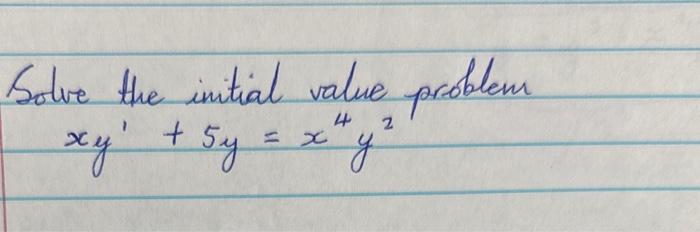 Solve the initial value problem
xy' + 5y = x⁴y²